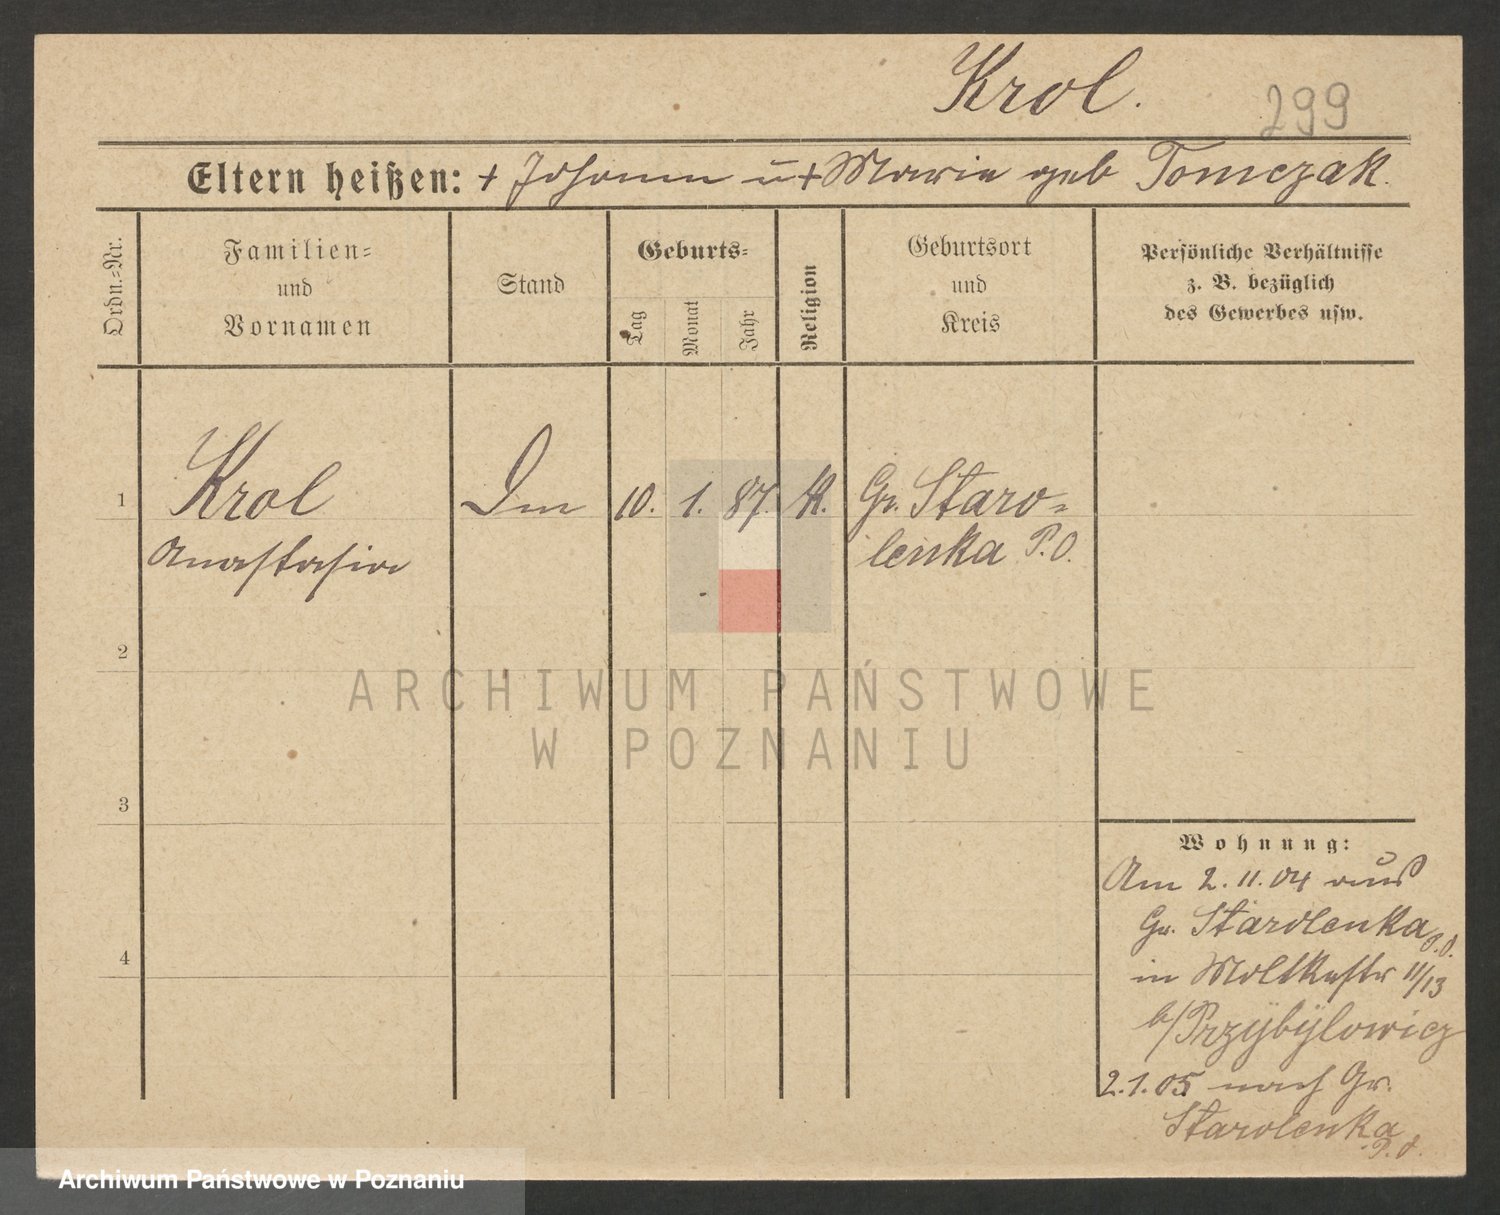 Krol.
299
Eltern heißen: + Johann u + Marie geb Tomczak.
Ordn.-Nr.
Familien-
und
Vornamen
Stand
Geburts-
Tag
Monat
Jahr
Religion
Geburtsort
und
Kreis
Persönliche Verhältnisse
z. B. bezüglich
des Gewerbes usw.
1 Krol Dm 10. 1. 87. K. Gr. Staro-
Anastasia lenka P.O.
2
ARCHIWUM PAŃSTWOWE
W POZNANIU
3
Wohnung:
Am 2.11.04 aus
Gr. Starolenka P.O.
4
in Moltkestr 11/13
b/Przybylowicz
2.1.05 nach Gr.
Starolenka
P.O.
Archiwum Państwowe w Poznaniu